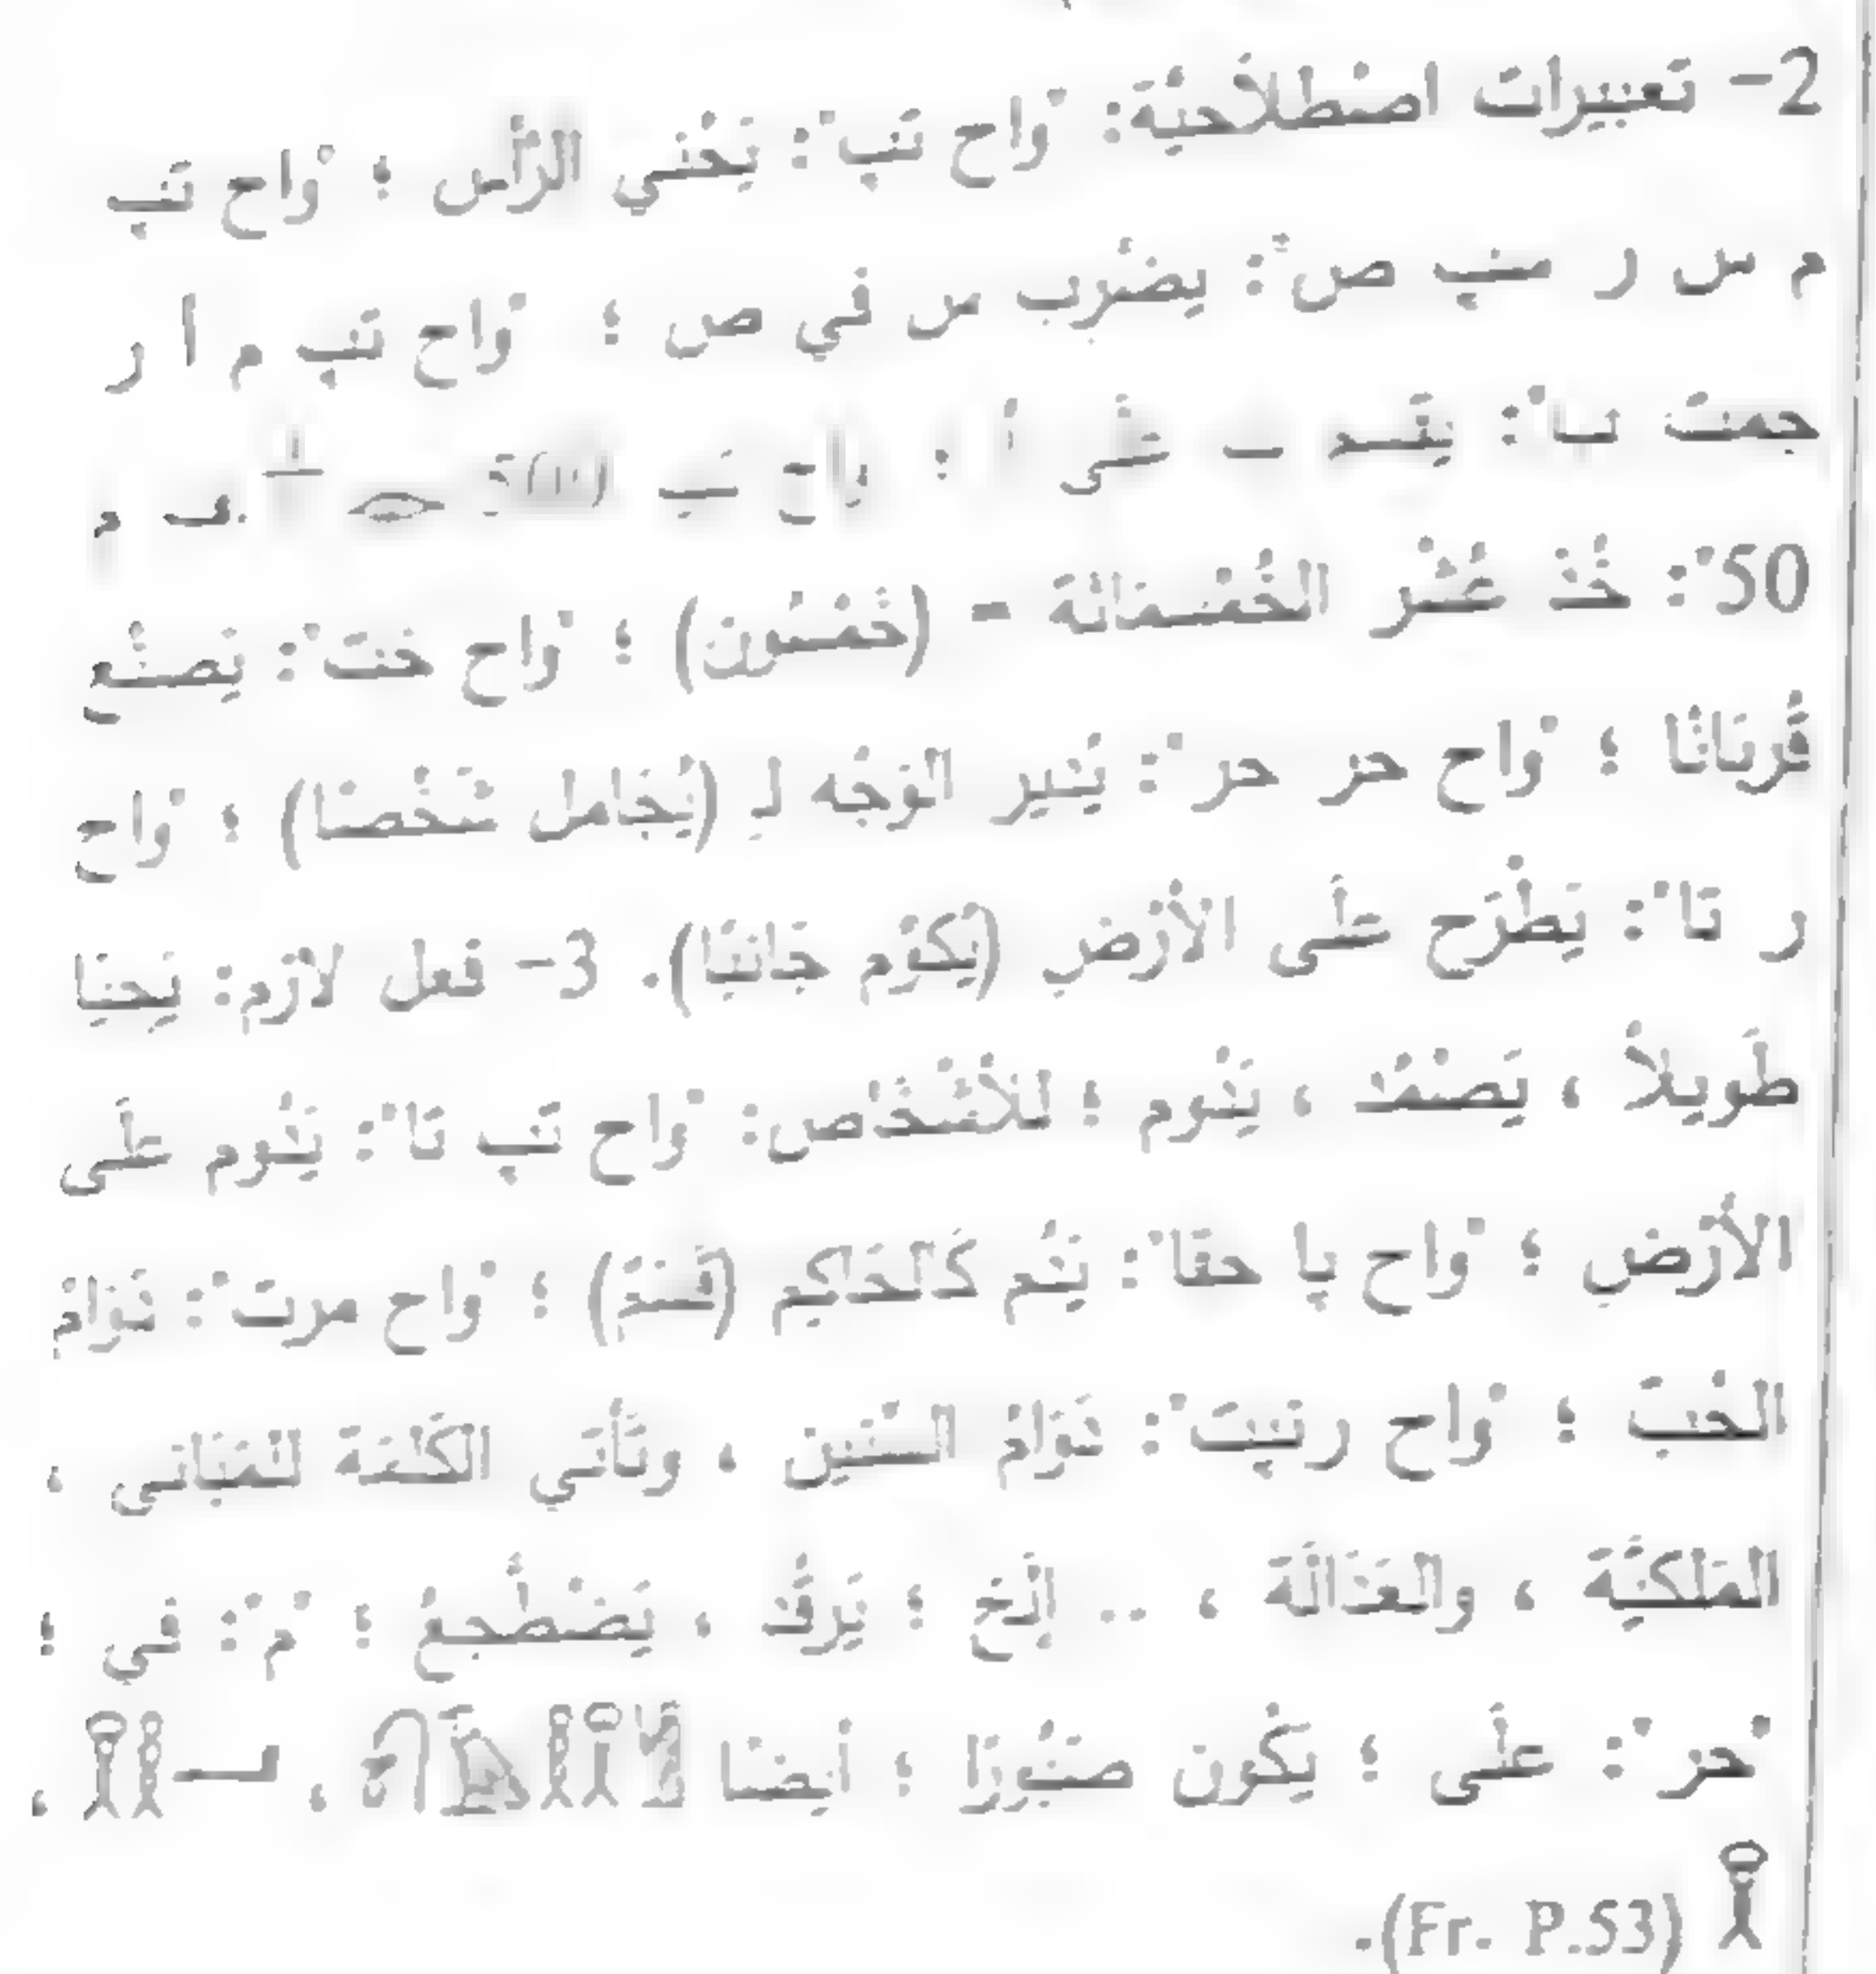 2- تعبيرات اصْطلاَحيَّة: "وَاح تب": يَحْني الرَّأْس ؛ "وَاح تَپ
م س ر سپ ص": يضْرب س في ص ؛ "وَاح تپ م أ ر
جمتَ ب": يقسم ب على أ ؛ واح تپ م
50": خُذْ عُشْر الخُمْسمائة = (خَمْسُون) ؛ "وَاح خت": يَصنَع
قُربَانًا ؛ "وَاح حز حر": يُنير الوَجْه لـ (يُجَامل شَخْصًا) ؛ "وَاح
ر تَا": يَطْرَح عَلَى الأرْض (يُكَوّم جَانبًا). 3- فعل لاَزم: يَحيَا
طَويلاً ، يَصْمُد ، يَدُوم ؛ للأشْخَاص: "وَاح تَپ تَا": يَدُوم عَلَى
الأرْض ؛ "وَاح پا حقا": يَدُم كَالحَاكم (قَسَمٌ) ؛ "وَاح مرت": دَوَامُ
الحُبّ ؛ "وَاح رنپت": دَوَامُ السّنين ، وتَأتي الكَلمَة للمَبَاني ،
المَلَكيَّة ، والعَدَالَة ، .. إلَخ ؛ يَرقُد ، يَضْطَجعُ ؛ "م": في ؛
"حر": عَلَى ؛ يَكُون صَبُورًا ؛ أيضًا ، ،
(Fr. P.53).